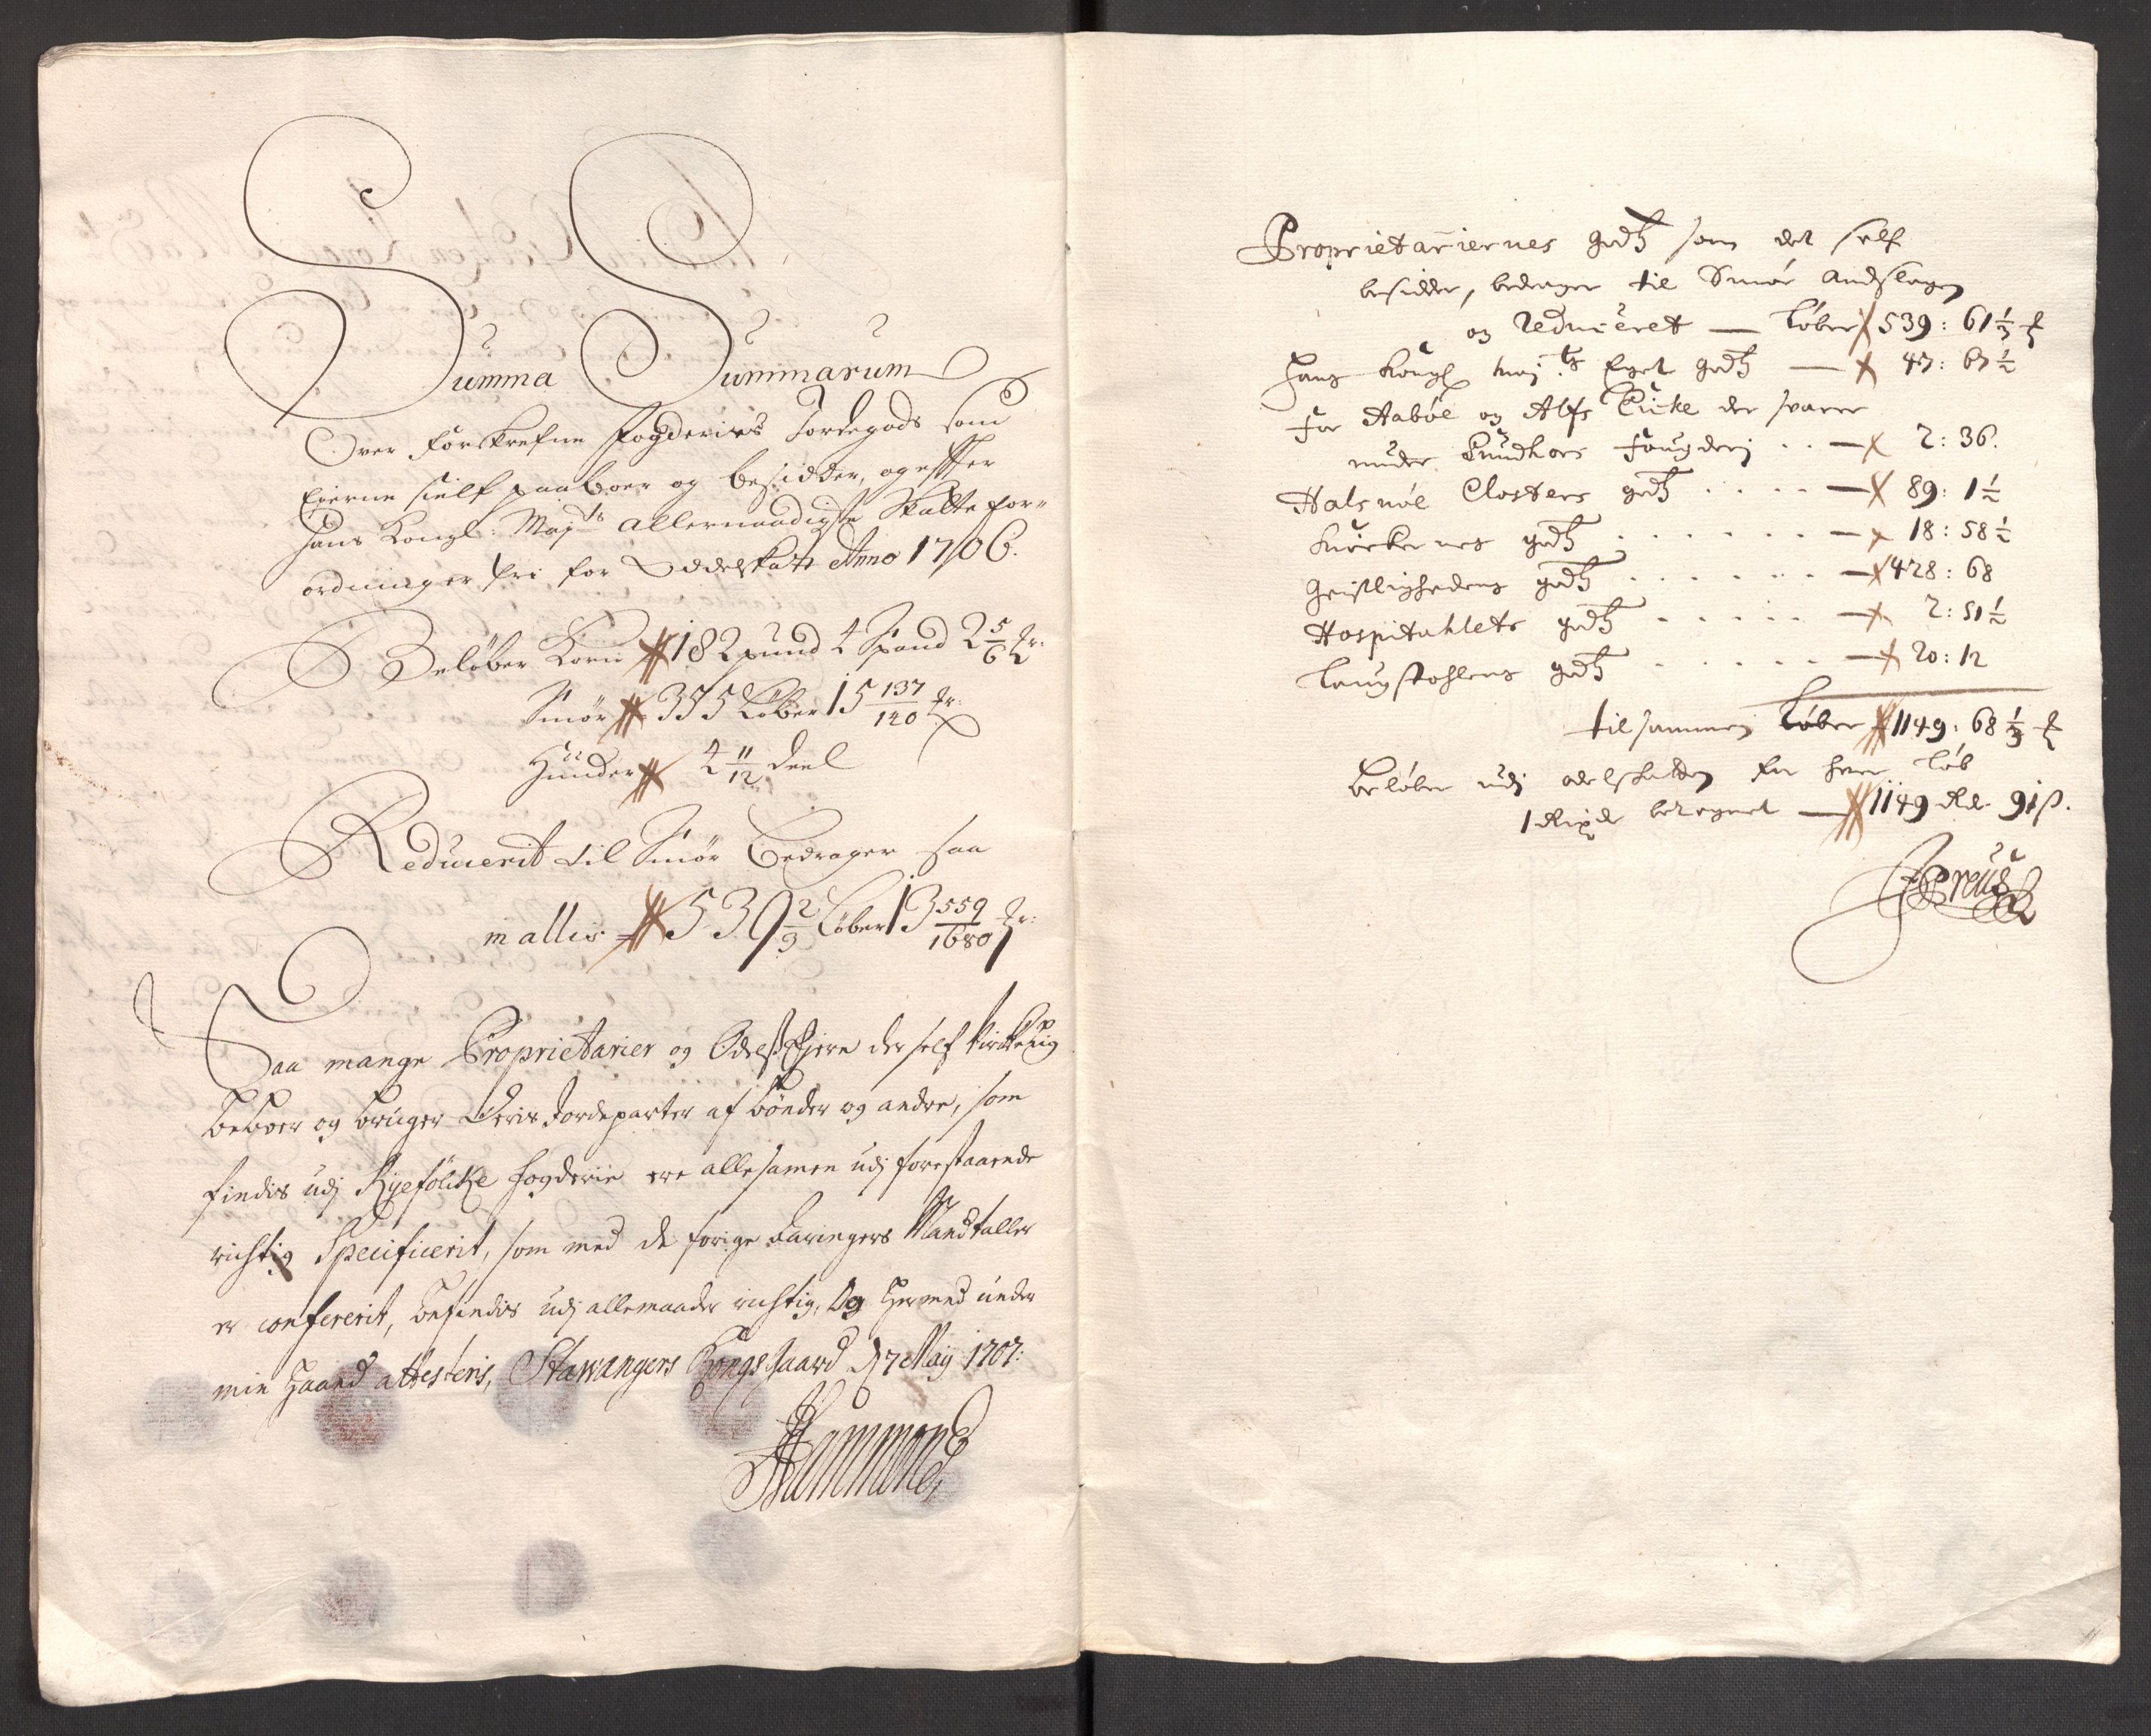 Summa Summarum
Over forskrefne fogderies Jordegods som
Eierne sielf paaboer og besidder, og effter
Hans Kongl: Mayts allernaadigste Skatte for-
ordninger fri for Oddelskatt Anno 1706.
Beløber Korn 182 pund 4 Spand 2 5/6 
Smør 375 Løber 15 137/140 
Huuder 4 11/12 deel
Reducerit til Smør Bedrager saa
in alles 539 2/3 Løber 13 559/1680 
Saa mange Proprietarier og OdelsEjere der self virkelig
beboer og bruger deris Jordeparter af bønder og andre, som
findis udj Ryefölcke fogderie ere allesamen udj forestaaende
richtig Specificerit, som med de forige Aaringers Mandtaller
er confererit, befindis udj allemaader richtig, Og hermed under
min Haand attesteris, Stawangers Kongsgaard d 7 Maij 1707:
Hammond
Proprietariernes godtz som det self
besidder, bedrager til Smör Andslagen
og Reduceret — Løber 539: 61 1/3
Hans Kongl May.ts Eget godtz — 47: 67 1/2
For Aaböe og Alfs Eicke der svarer
under Sundhors fougderj . . — 2: 36.
Halsnöe Closters godtz . . . . — 89: 1 1/2
Kirckernes godtz . . . . . . — 18: 58 1/2
Geistlighedens godtz . . . . . . — 428: 68
Hospitahlets godtz . . . . . — 2: 51 1/2
Laugstohlens godtz . . . . . — 20: 12
tilsammen Løber 1149: 68 1/3
Beløber udj odelskatten for hver Løb
1 Rixdr beregnet — 1149 Rdr 91 ß.
Preüs